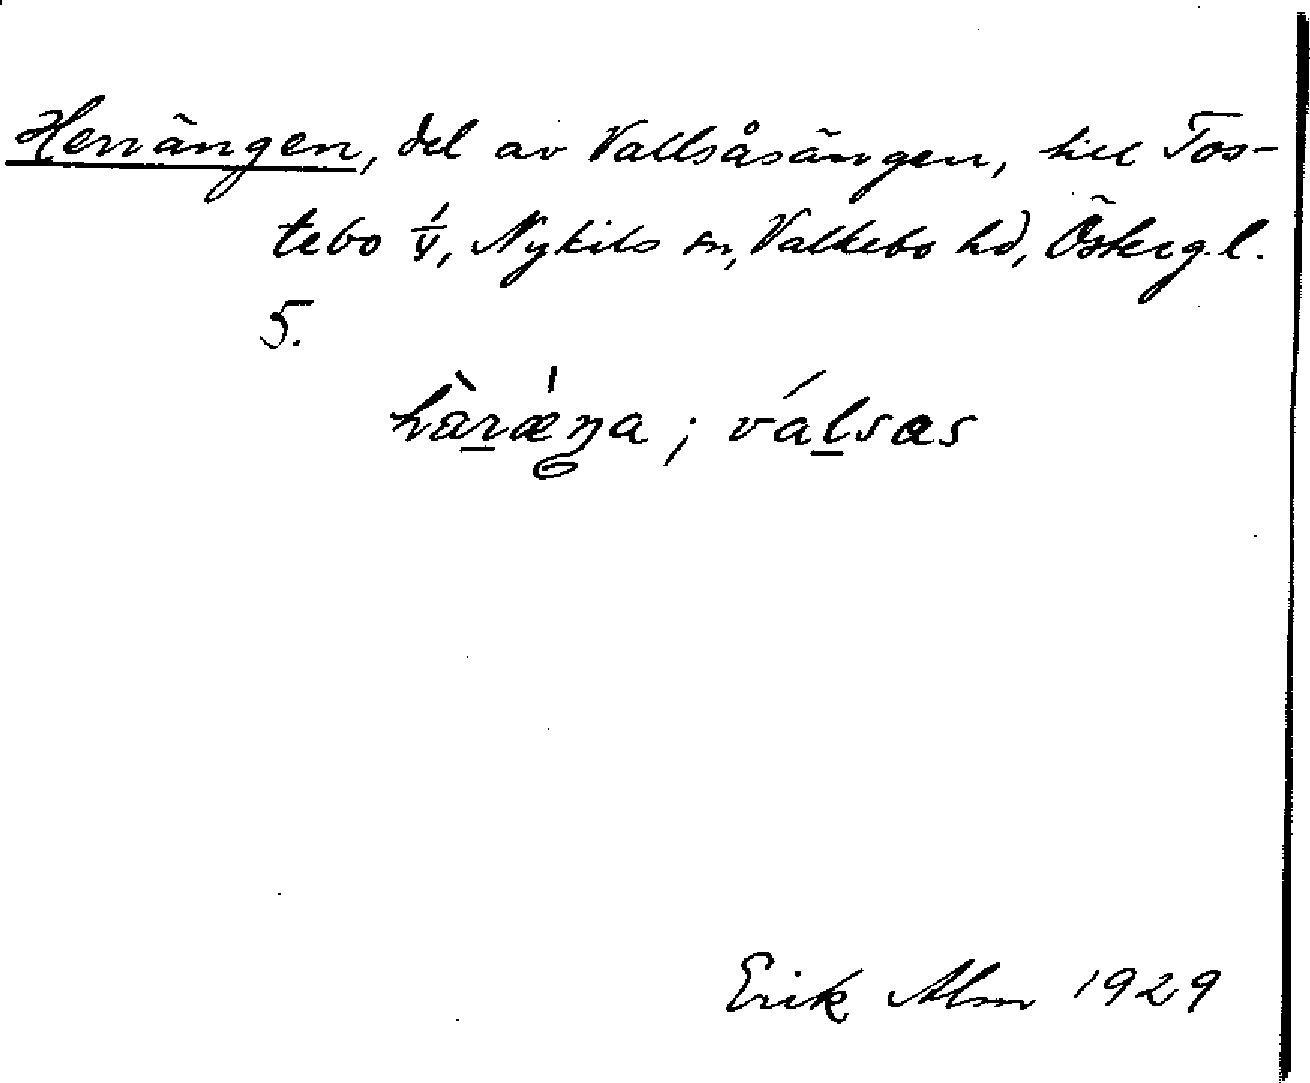 Herrängen, del av Vallsåsängen, till Tos-
tebo 1/V, Nykils sn, Valkebo hd, Österg. l.
5.
hàræ̀ŋa ; válsas
Erik Alm 1929